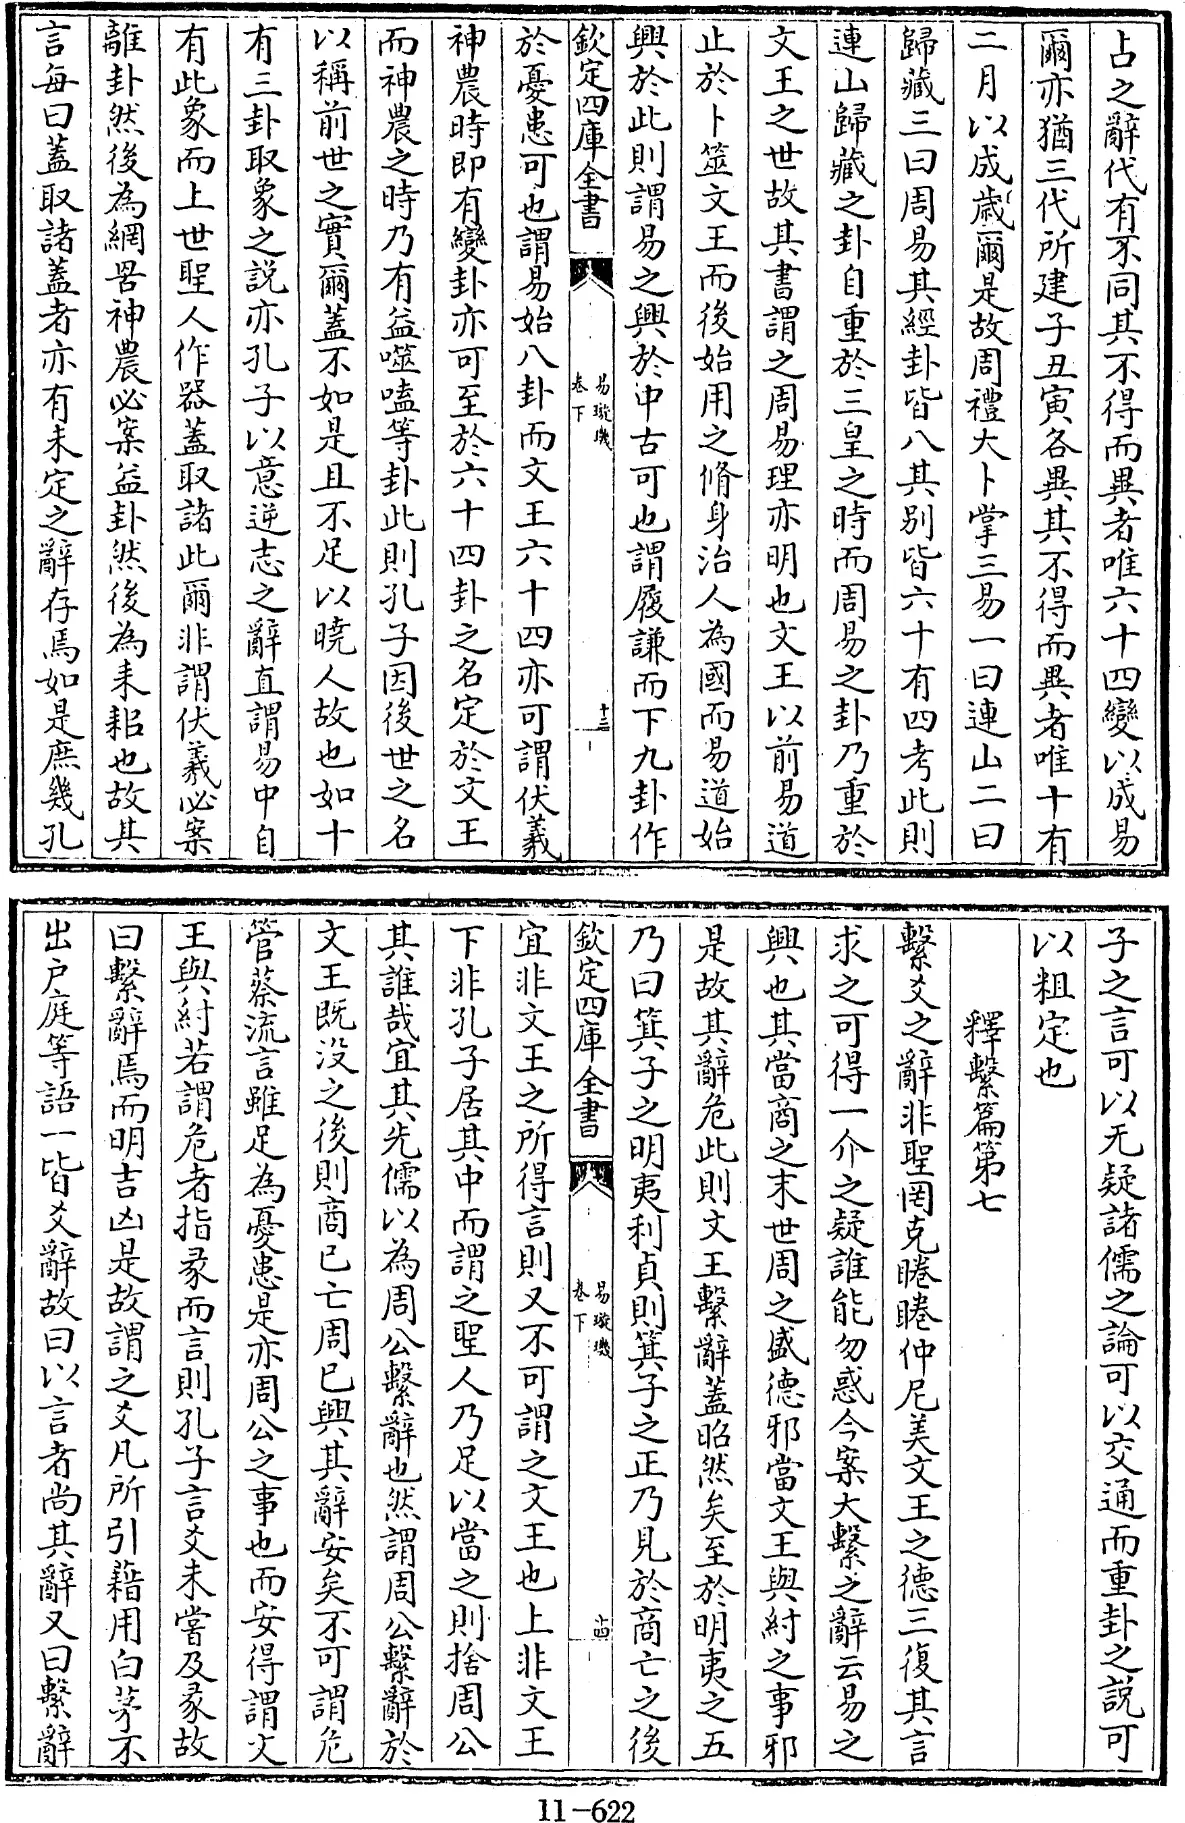 占之辭代有不同其不得而異者唯六十四變以成易
爾亦猶三代所建子丑寅各異其不得而異者唯十有
二月以成歲爾是故周禮大卜掌三易一曰連山二曰
歸藏三曰周易其經卦皆八其别皆六十有四考此則
連山歸藏之卦自重於三皇之時而周易之卦乃重於
文王之世故其書謂之周易理亦明也文王以前易道
止於卜筮文王而後始用之脩身治人為國而易道始
興於此則謂易之興於中古可也謂履謙而下九卦作
欽定四庫全書
易璇璣
卷下
十三
於憂患可也謂易始八卦而文王六十四亦可謂伏羲
神農時即有變卦亦可至於六十四卦之名定於文王
而神農之時乃有益噬嗑等卦此則孔子因後世之名
以稱前世之實爾蓋不如是且不足以曉人故也如十
有三卦取象之説亦孔子以意逆志之辭直謂易中自
有此象而上世聖人作器蓋取諸此爾非謂伏羲必案
離卦然後為網罟神農必案益卦然後為耒耜也故其
言每曰蓋取諸蓋者亦有未定之辭存焉如是庶幾孔
子之言可以无疑諸儒之論可以交通而重卦之説可
以粗定也
釋繫篇第七
繫爻之辭非聖罔克睠睠仲尼美文王之德三復其言
求之可得一介之疑誰能勿惑今案大繫之辭云易之
興也其當商之末世周之盛德邪當文王與紂之事邪
是故其辭危此則文王繫辭蓋昭然矣至於明夷之五
乃曰箕子之明夷利貞則箕子之正乃見於商亡之後
欽定四庫全書
易璇璣
卷下
十四
宜非文王之所得言則又不可謂之文王也上非文王
下非孔子居其中而謂之聖人乃足以當之則捨周公
其誰哉宜其先儒以為周公繫辭也然謂周公繫辭於
文王既没之後則商已亡周已興其辭安矣不可謂危
管蔡流言雖足為憂患是亦周公之事也而安得謂文
王與紂若謂危者指彖而言則孔子言爻未嘗及彖故
曰繫辭焉而明吉凶是故謂之爻凡所引藉用白茅不
出户庭等語一皆爻辭故曰以言者尚其辭又曰繫辭
11-622